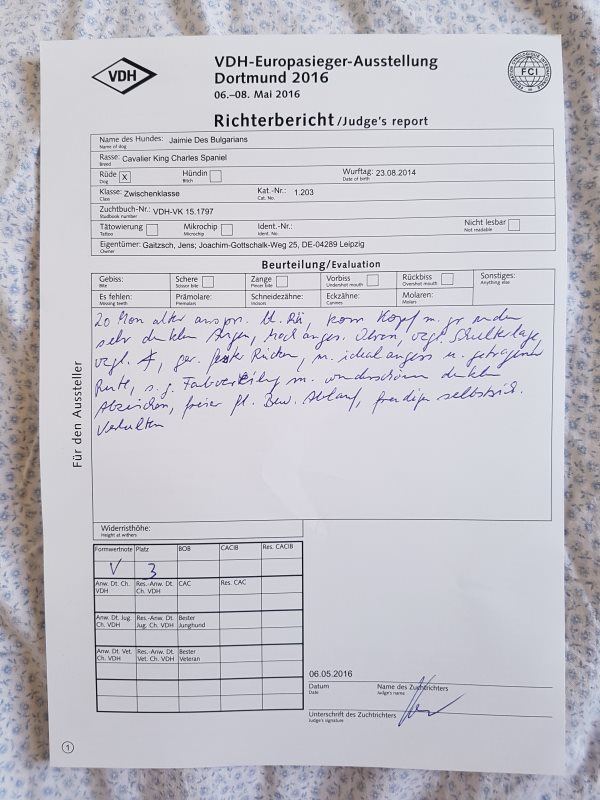 VDH
VDH-Europasieger-Ausstellung
Dortmund 2016
06.–08. Mai 2016
FCI
Richterbericht/Judge's report
Name des Hundes: Jaimie Des Bulgarians
Name of dog
Rasse: Cavalier King Charles Spaniel
Breed
Rüde X Hündin Wurftag: 23.08.2014
Dog Bitch Date of birth
Klasse: Zwischenklasse Kat.-Nr.: 1.203
Class Cat. No.
Zuchtbuch-Nr.: VDH-VK 15.1797
Studbook number
Tätowierung Mikrochip Ident.-Nr.: Nicht lesbar
Tattoo Microchip Ident. No. Not readable
Eigentümer: Gaitzsch, Jens; Joachim-Gottschalk-Weg 25, DE-04289 Leipzig
Owner
Beurteilung/Evaluation
Gebiss: Schere Zange Vorbiss Rückbiss Sonstiges:
Bite Scissor bite Pincer bite Undershot mouth Overshot mouth Anything else
Es fehlen: Prämolare: Schneidezähne: Eckzähne: Molaren:
Missing teeth Premolars Incisors Canines Molars
20 Mon alter Kopf m.
sehr dunklen Augen, hoch anges. Ohren, vzgl. Schulterlage,
vzgl. fester Rücken, m. ideal angess u. getragener
Rute, s. g. m. wunderschönen dunklen
Abzeichen, freier fl. Bew. Ablauf, freudiges selbstsich.
Verhalten
Für den Aussteller
Widerristhöhe:
Height at withers
Formwertnote Platz BOB CACIB Res. CACIB
V 3
Anw. Dt. Ch. VDH Res.-Anw. Dt. Ch. VDH CAC Res. CAC
Anw. Dt. Jug. Ch. VDH Res.-Anw. Dt. Jug. Ch. VDH Bester Junghund
Anw. Dt. Vet. Ch. VDH Res.-Anw. Dt. Vet. Ch. VDH Bester Veteran
06.05.2016
Datum Name des Zuchtrichters
Date Judge's name
Unterschrift des Zuchtrichters
Judge's signature
1